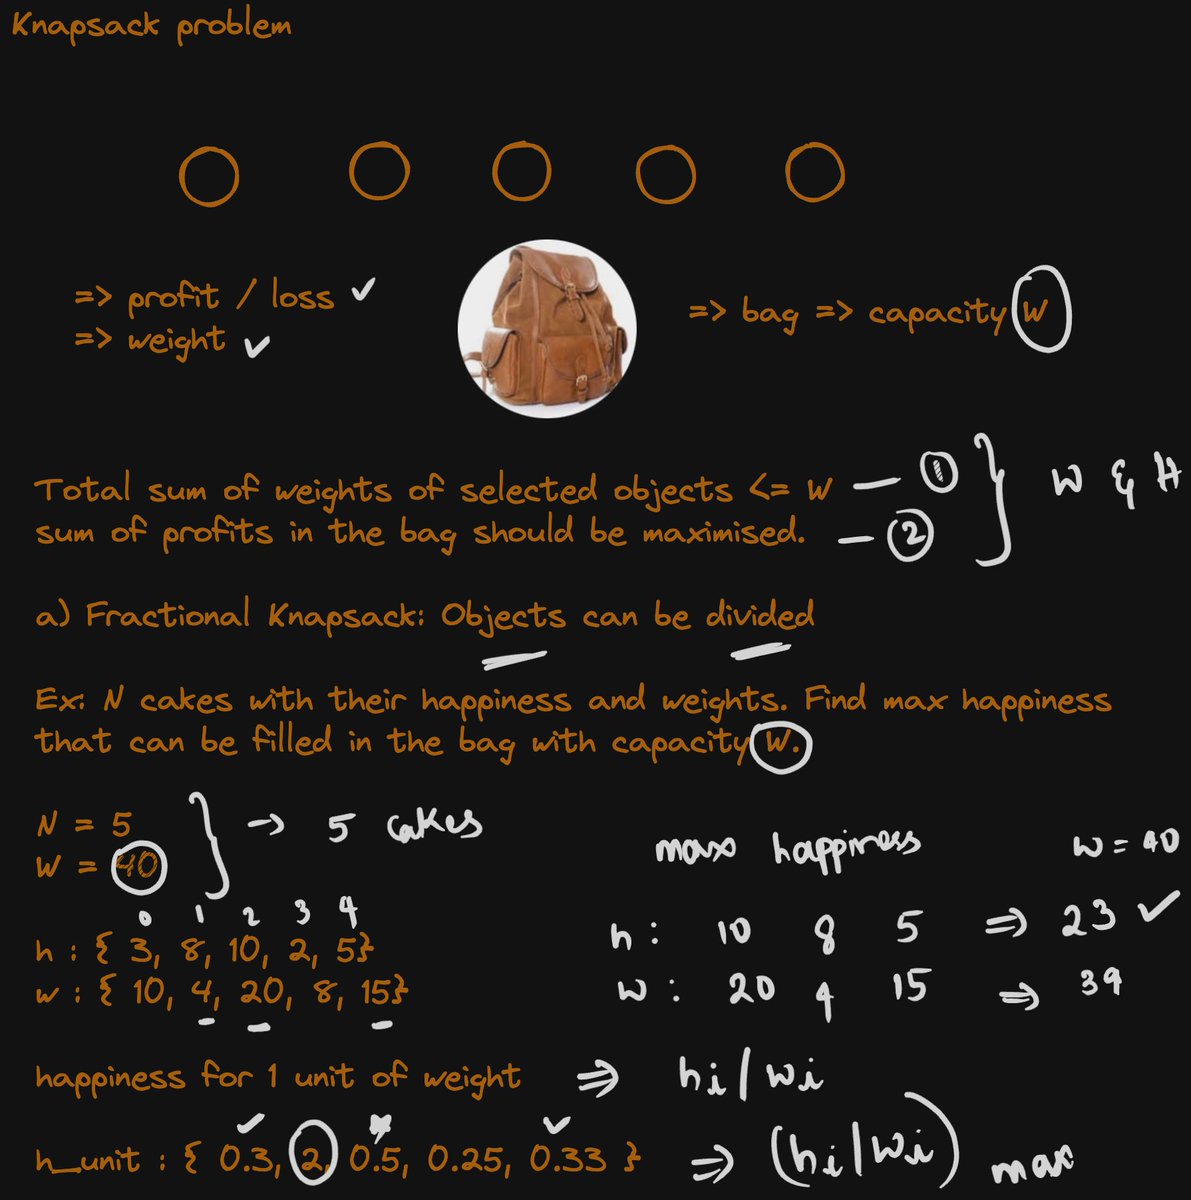 Knapsack problem
=> profit / loss ✓
=> weight ✓
=> bag => capacity W
Total sum of weights of selected objects <= W — ①
sum of profits in the bag should be maximised. — ②
W & H
a) Fractional Knapsack: Objects can be divided
Ex: N cakes with their happiness and weights. Find max happiness
that can be filled in the bag with capacity W.
N = 5
W = 40
→ 5 cakes
0 1 2 3 4
h : { 3, 8, 10, 2, 5}
w : { 10, 4, 20, 8, 15}
max happiness w = 40
h : 10 8 5 => 23 ✓
w : 20 4 15 => 39
happiness for 1 unit of weight => hi/wi
h_unit : { 0.3, 2, 0.5, 0.25, 0.33 } => (hi/wi) max